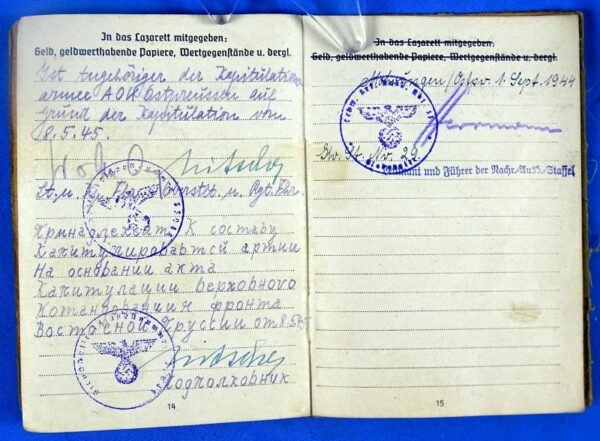 In das Lazarett mitgegeben:
Geld, geldwerthabende Papiere, Wertgegenstände u. dergl.
Ist Angehöriger der Kapitulations
armee AOK Ostpreussen auf
Grund der Kapitulation vom
8.5.45.
Nitsche
Lt. u. Oberstlt. u. Rgt. Fhr.
Принадлежит к составу
Капитулировартсй артии
На основании акта
Капитулации верховного
Командования фронта
Восточной Пруссии от 8.5.45
Nitsche
Подполковник
14
In das Lazarett mitgegeben:
Geld, geldwerthabende Papiere, Wertgegenstände u. dergl.
Mohrungen/Ostpr. 1. Sept. 1944
Nr. 29
und Führer der Nachr.-Ausb.-Staffel
15